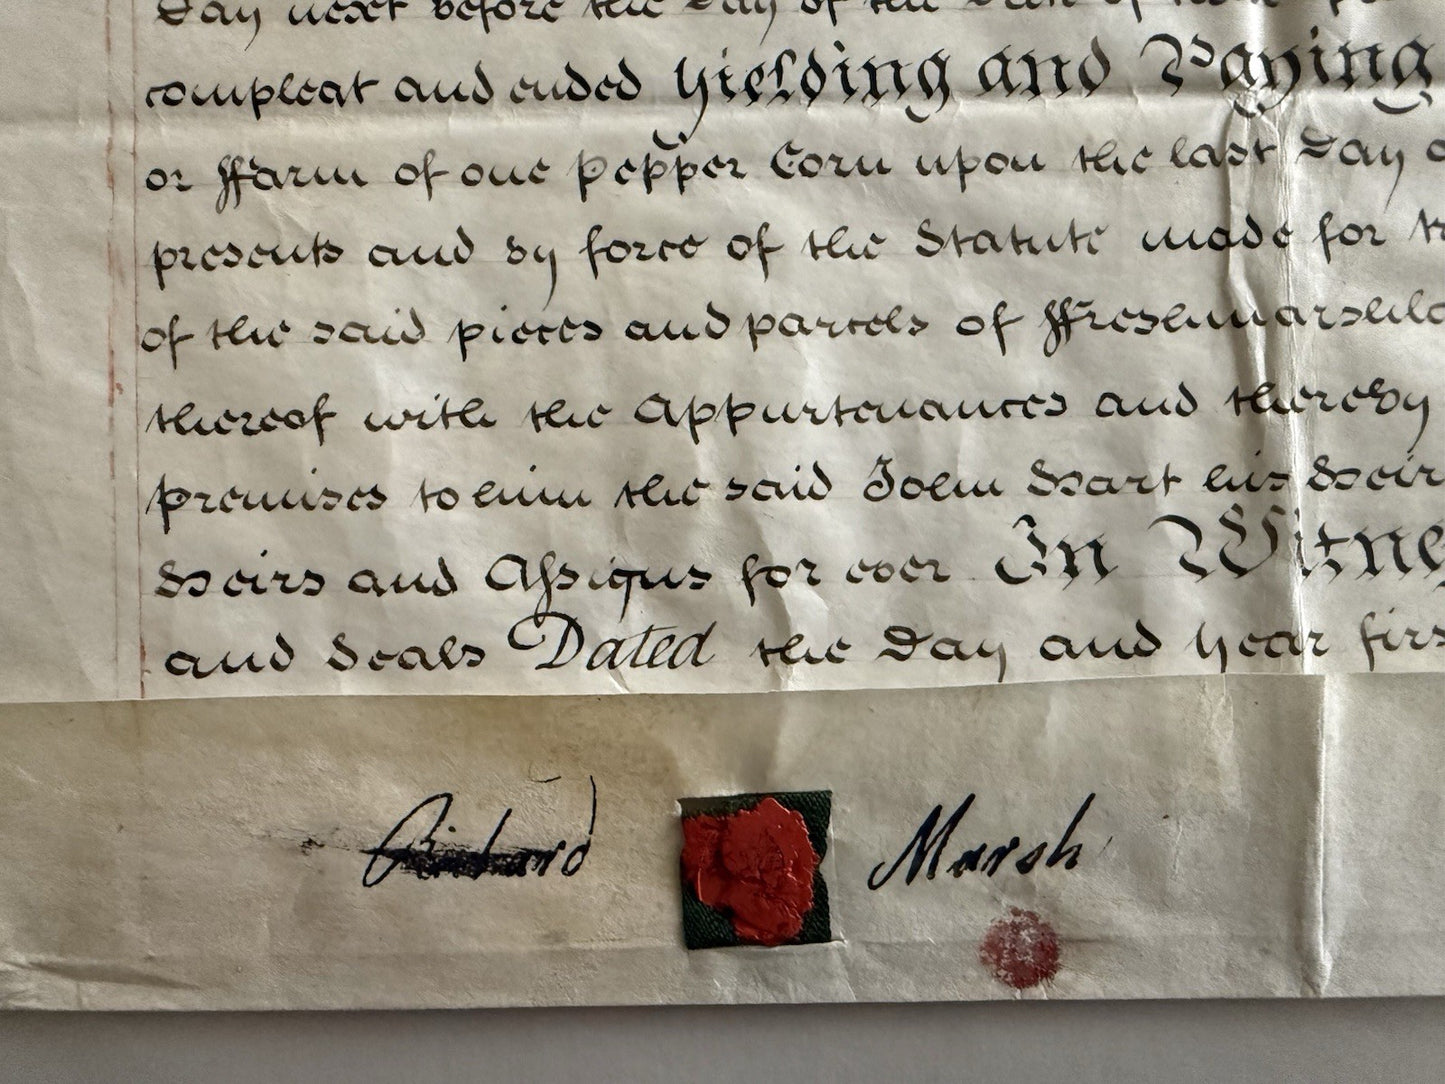 Day next before the Day of the Date of these
compleat and ended Yielding and Paying
or ffarm of one Pepper Corn upon the last Day
presents and by force of the Statute made for
of the said pieces and parcels of ffreshmarsh
thereof with the Appurtenances and thereby
premises to him the said John Hart his Heir
Heirs and Assigns for ever In Witne
and Seals Dated the Day and Year firs
Richard Marsh